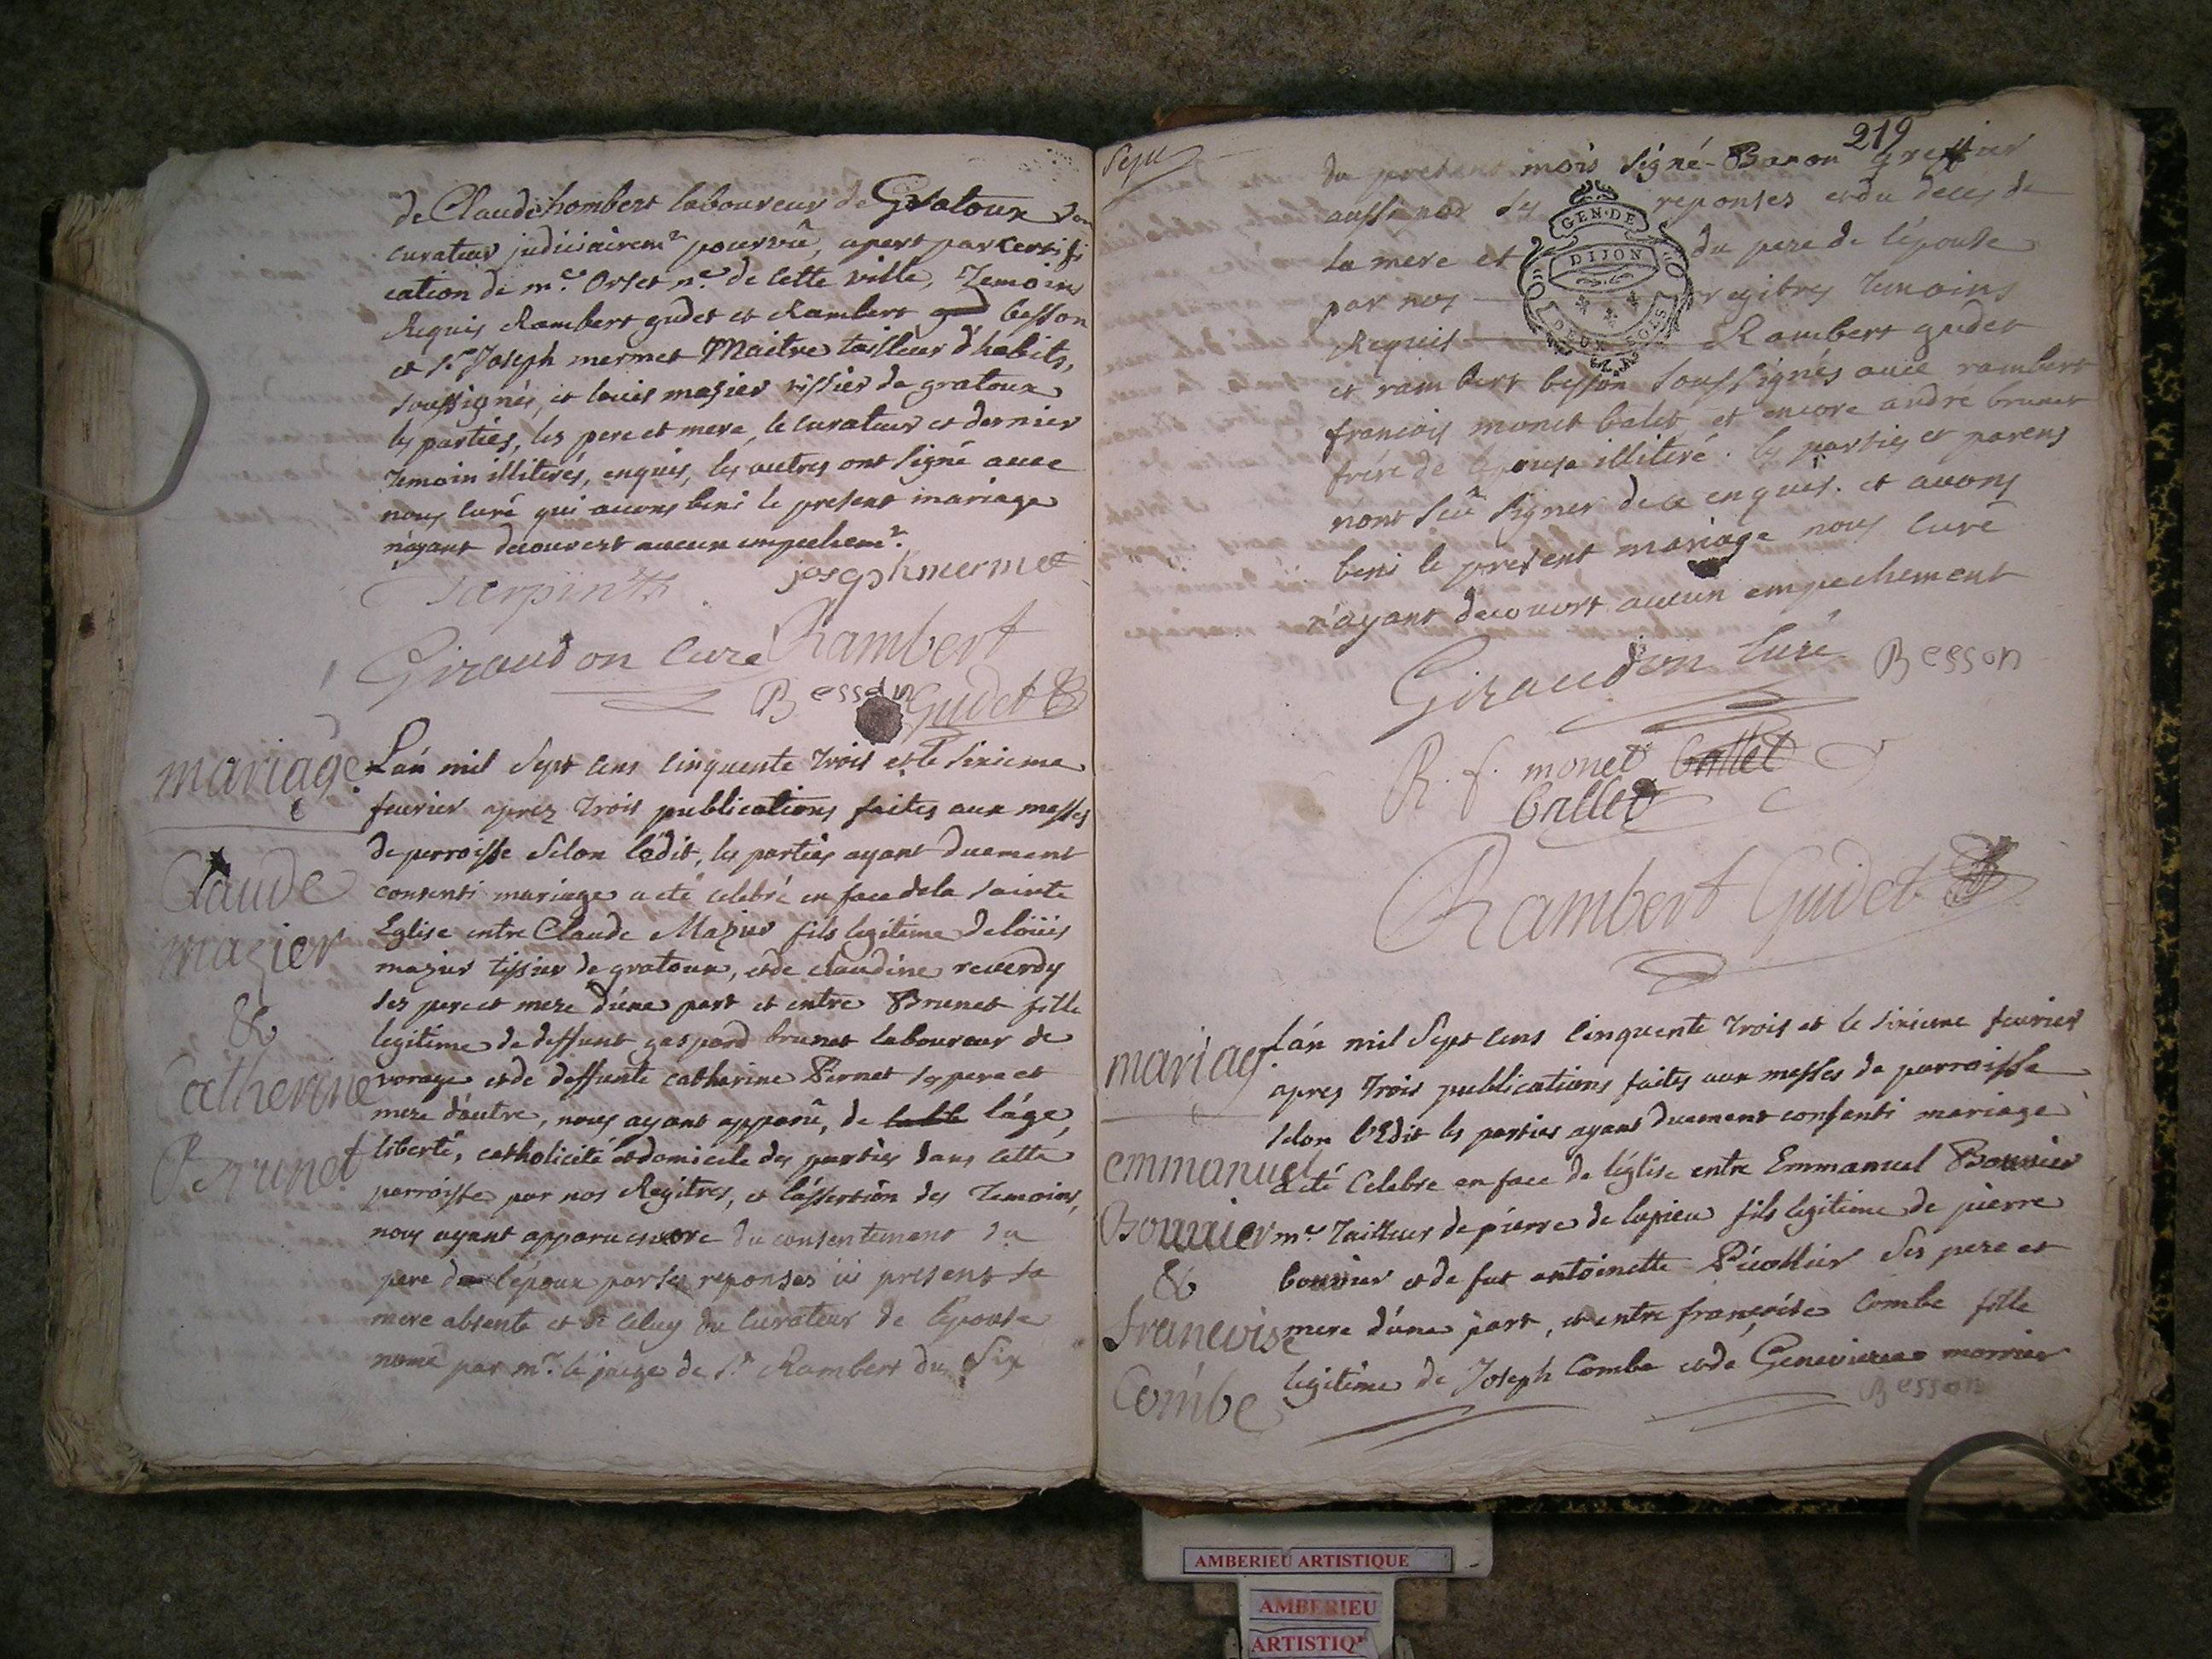 de Claude hombert laboureur de Gratoux son
curateur judiciairemt pourvû, apert par certifi
cation de me. Orset ne. de cette ville, Temoins
Requis Rambert gudet et Rambert besson
et Sr. Joseph mermet Maitre tailleur d'habits,
soussignés, et louis mazier tissier de gratoux
les parties, les pere et mere, le curateur et dernier
temoin illiterés, enquis, les autres ont signé avec
nous curé qui avons beni le present mariage
n'ayant decouvert aucun empechemt.
josephmermet
Giraudon curé Rambert
Besson Gudet
mariage
Claude
mazier
&
Catherine
Brunet
L'an mil Sept cens cinquente trois et le sixieme
fevrier aprez trois publications faites aux messes
de parroisse selon l'edit, les parties ayant duement
consenti mariage a eté celebré en face de la sainte
Eglise entre Claude Mazier fils legitime de loüis
mazier tissier de gratoux, et de claudine reverdy
ses pere et mere d'une part et entre Brunet fille
legitime de deffunt gaspard brunet laboureur de
vorage et de deffunte catherine Pernet ses pere et
mere d'autre, nous ayant apparu, de l'áge,
liberté, catholicité et domicile des parties dans cette
parroisse par nos Regitres, et l'assertion des temoins,
nous ayant apparu encore du consentement du
pere de l'epoux par ses reponses ici present sa
mere absente et de celuy du curateur de l'epouse
nomé par mr. le juge de St. Rambert du Six
219
du present mois signé Baron greffier
aussi par ses reponses et du deces de
la mere et du pere de l'épouse
par nos regitres temoins
Requis Rambert gudet
et rambert besson soussignés avec rambert
francois monet balet et encore andré brunet
frére de l'epouse illiteré. les parties et parens
n'ont scû signer de ce enquis. et avons
beni le present mariage nous curé
n'ayant decouvert aucun empechement
GEN. DE
DIJON
DEUX SOLS
Giraudon curé Besson
R. f. monet ballet
ballet
Rambert Gudet
mariag
emmanuel
Bouuier
&
francoise
Combe
L'an mil Sept cens cinquente trois et le sixieme fevrier
apres trois publications faites aux messes de parroisse
selon l'Edit les parties ayant duement consenti mariage
a eté celebre en face de l'église entre Emmanuel Bouvier
me tailleur de pierre de lupieu fils legitime de pierre
bouvier et de fut antoinette ses pere et
mere d'une part, et entre françoise Combe fille
legitime de Joseph Combe et de Genevieve morrier
Besson
AMBERIEU ARTISTIQUE
AMBERIEU
ARTISTIQ